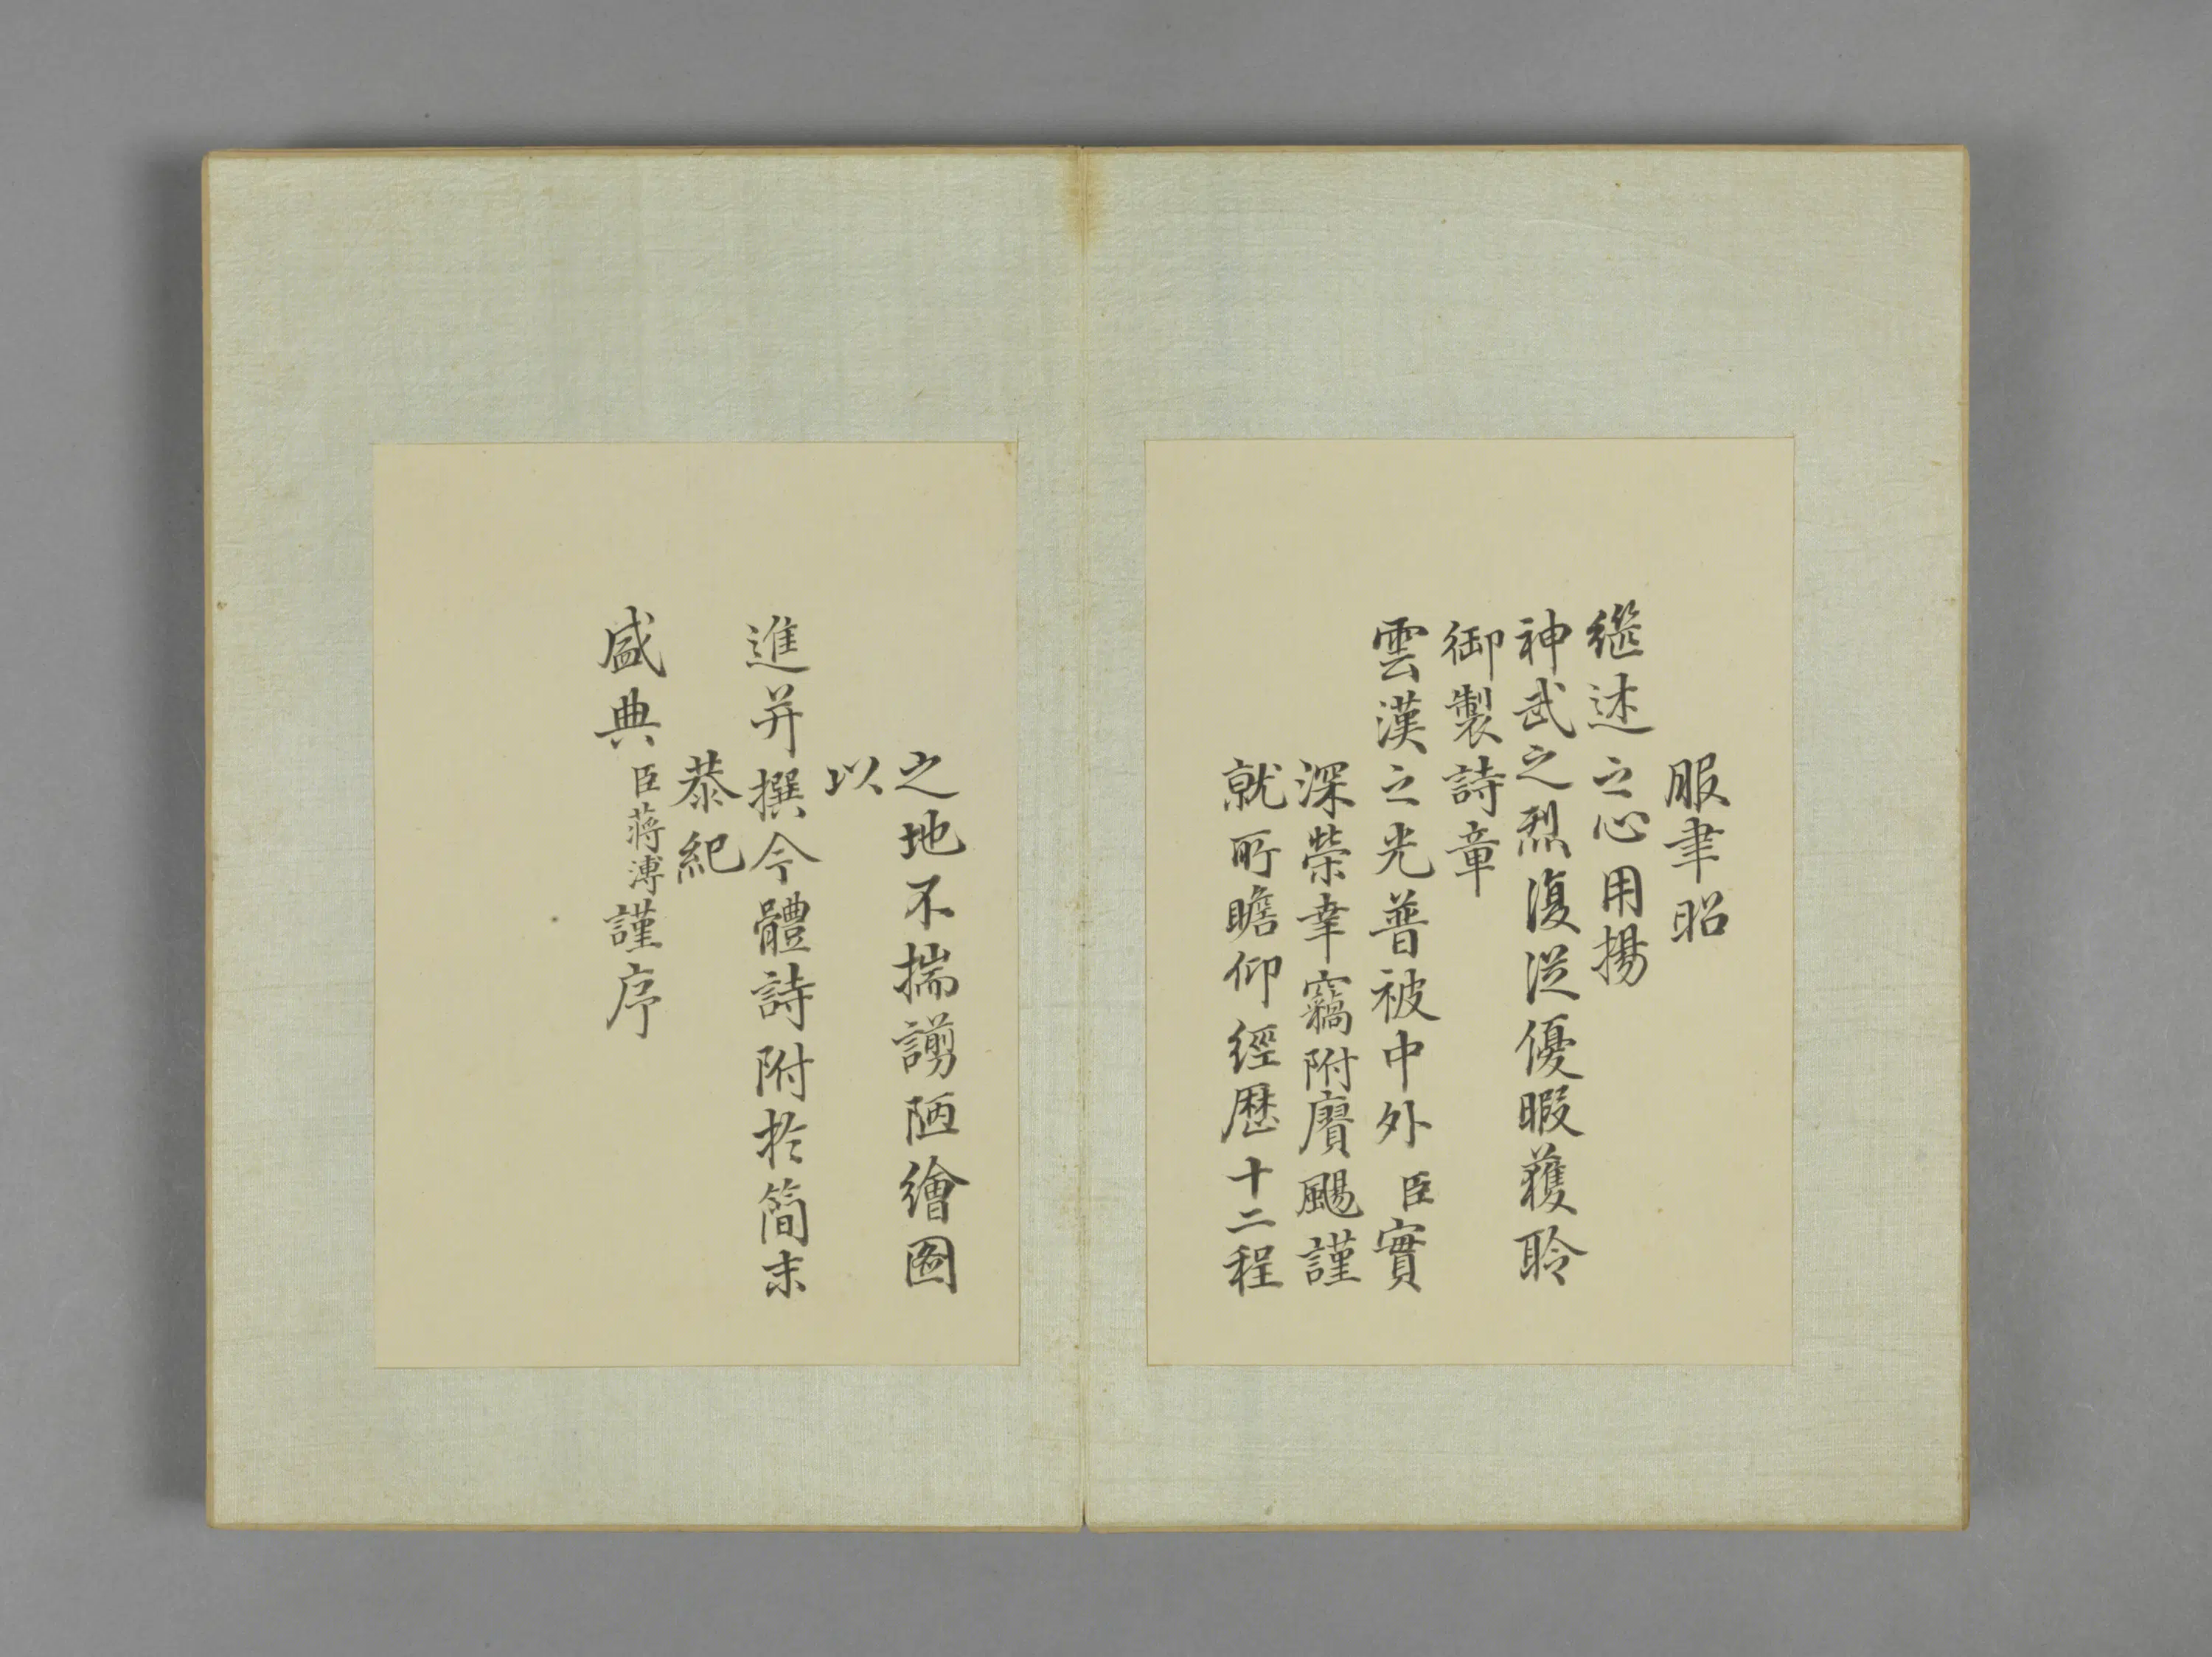 服聿昭
繼述之心用揚
神武之烈復從優暇獲聆
御製詩章
雲漢之光普被中外臣實
深榮幸竊附賡颺謹
就所瞻仰經歷十二程
之地不揣謭陋繪圖
以
進并撰今體詩附於簡末
恭紀
盛典臣蔣溥謹序